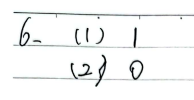 6- (1) 1
(2) 0